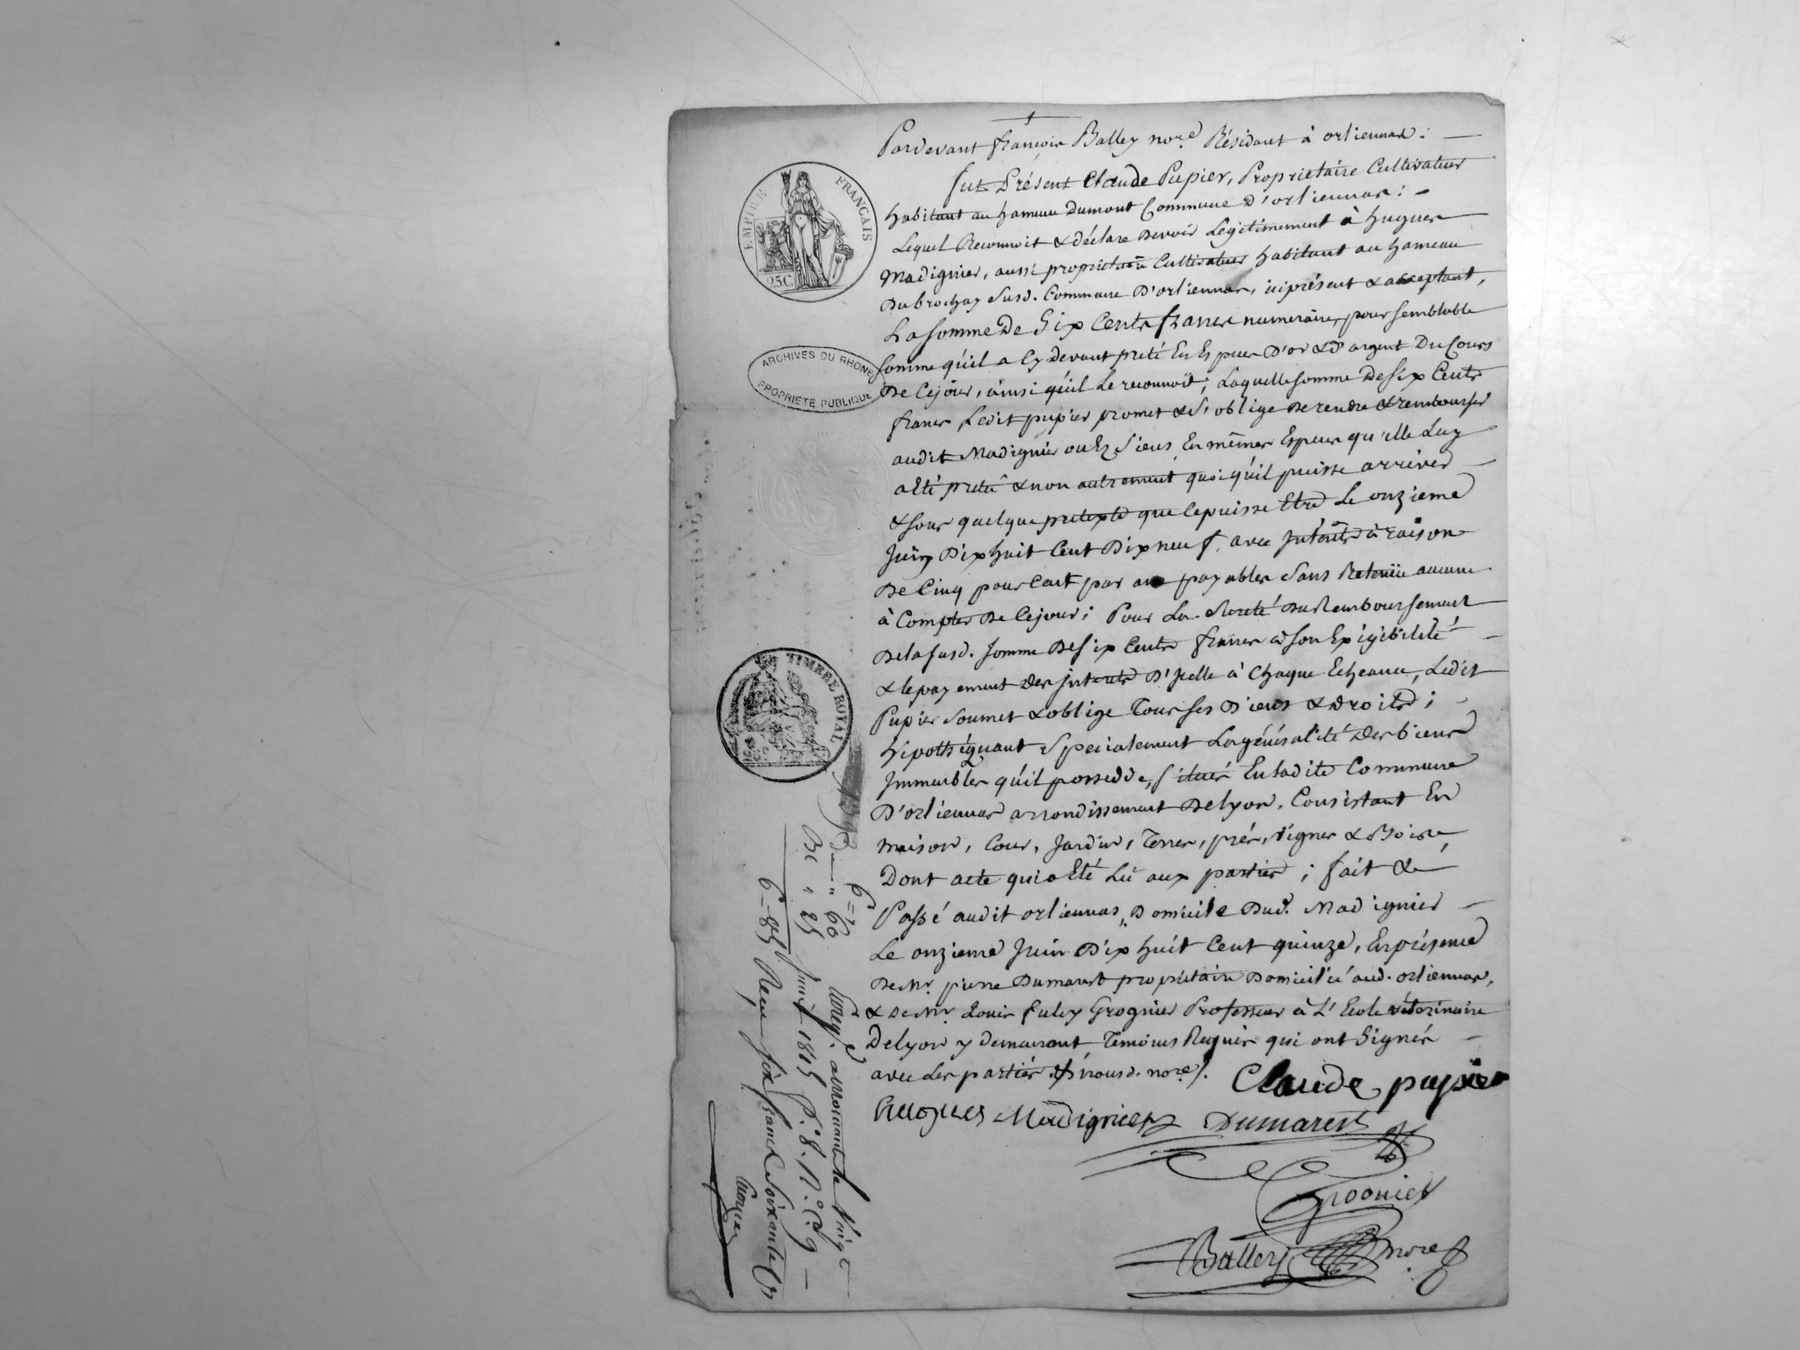 Pardevant françois Balley nore. Résidant à orliennas :
fut Présent Claude Pupier, Propriétaire Cultivateur
habitant au hameau Dumont Commune D'orliennas :
Lequel Reconnoit & déclare Devoir Légitimement à hugues
Madignier, aussi propriétaire Cultivateur habitant au hameau
Du brochay susd. Commune D'orliennas, içi présent & acceptant,
La somme De Six Cents francs numeraire, pour semblable
somme qu'il a Cy devant preté En Especes D'or & D'argent Du Cours
De Cejour, ainsi qu'il Le reconnoit ; Laquelle somme De six Cents
francs Ledit pupier promet & s'oblige De rendre & rembourser
audit Madignier ou Ez siens En mêmes Especes qu'elle Luy
a Eté pretée & non autrement quoiqu'il puisse arriver
& sous quelque pretexte que Ce puisse Etre Le onzieme
Juin Dix huit Cent Dix neuf, avec Intérêts à raison
De Cinq pour Cent par an payables sans Retenüe aucune
à Compter De Cejour ; Pour La sureté Du Remboursement
De la susd. somme De six Cents francs à son Exigibilité
& le payement des Intérêts D'icelle à Chaque Echeance, Ledit
Pupier soumet & oblige Tous ses Biens & droits ;
hipothéquant spécialement La généralité Des biens
Immeubles qu'il possedde, situés En ladite Commune
D'orliennas arrondissement De lyon, Consistant En
maison, Cour, Jardin, Terres, prés, Vignes & Bois
Dont acte qui a Eté Lû aux parties ; fait &
Passé audit orliennas, Domicile Dud. Madignier
Le onzieme Juin Dix huit Cent quinze, En présence
De Mr. pierre Dumarest propriétaire Domicilié aud. orliennas,
& De Mr. Louis fulcy Grognier Professeur à L'Ecole vétérinaire
De lyon y demeurant, Temoins Requis qui ont Signés
avec Les parties & nousd. nore.
Claude pupier
hugues Madignier Dumarest
Grognier
Balley nore
EMPIRE FRANÇAIS
25C.
ARCHIVES DU RHONE
PROPRIETE PUBLIQUE
TIMBRE ROYAL
6 =
" 60
" 25
6 = 85
Juin 1815 f° 8.
Reçu six francs soixante